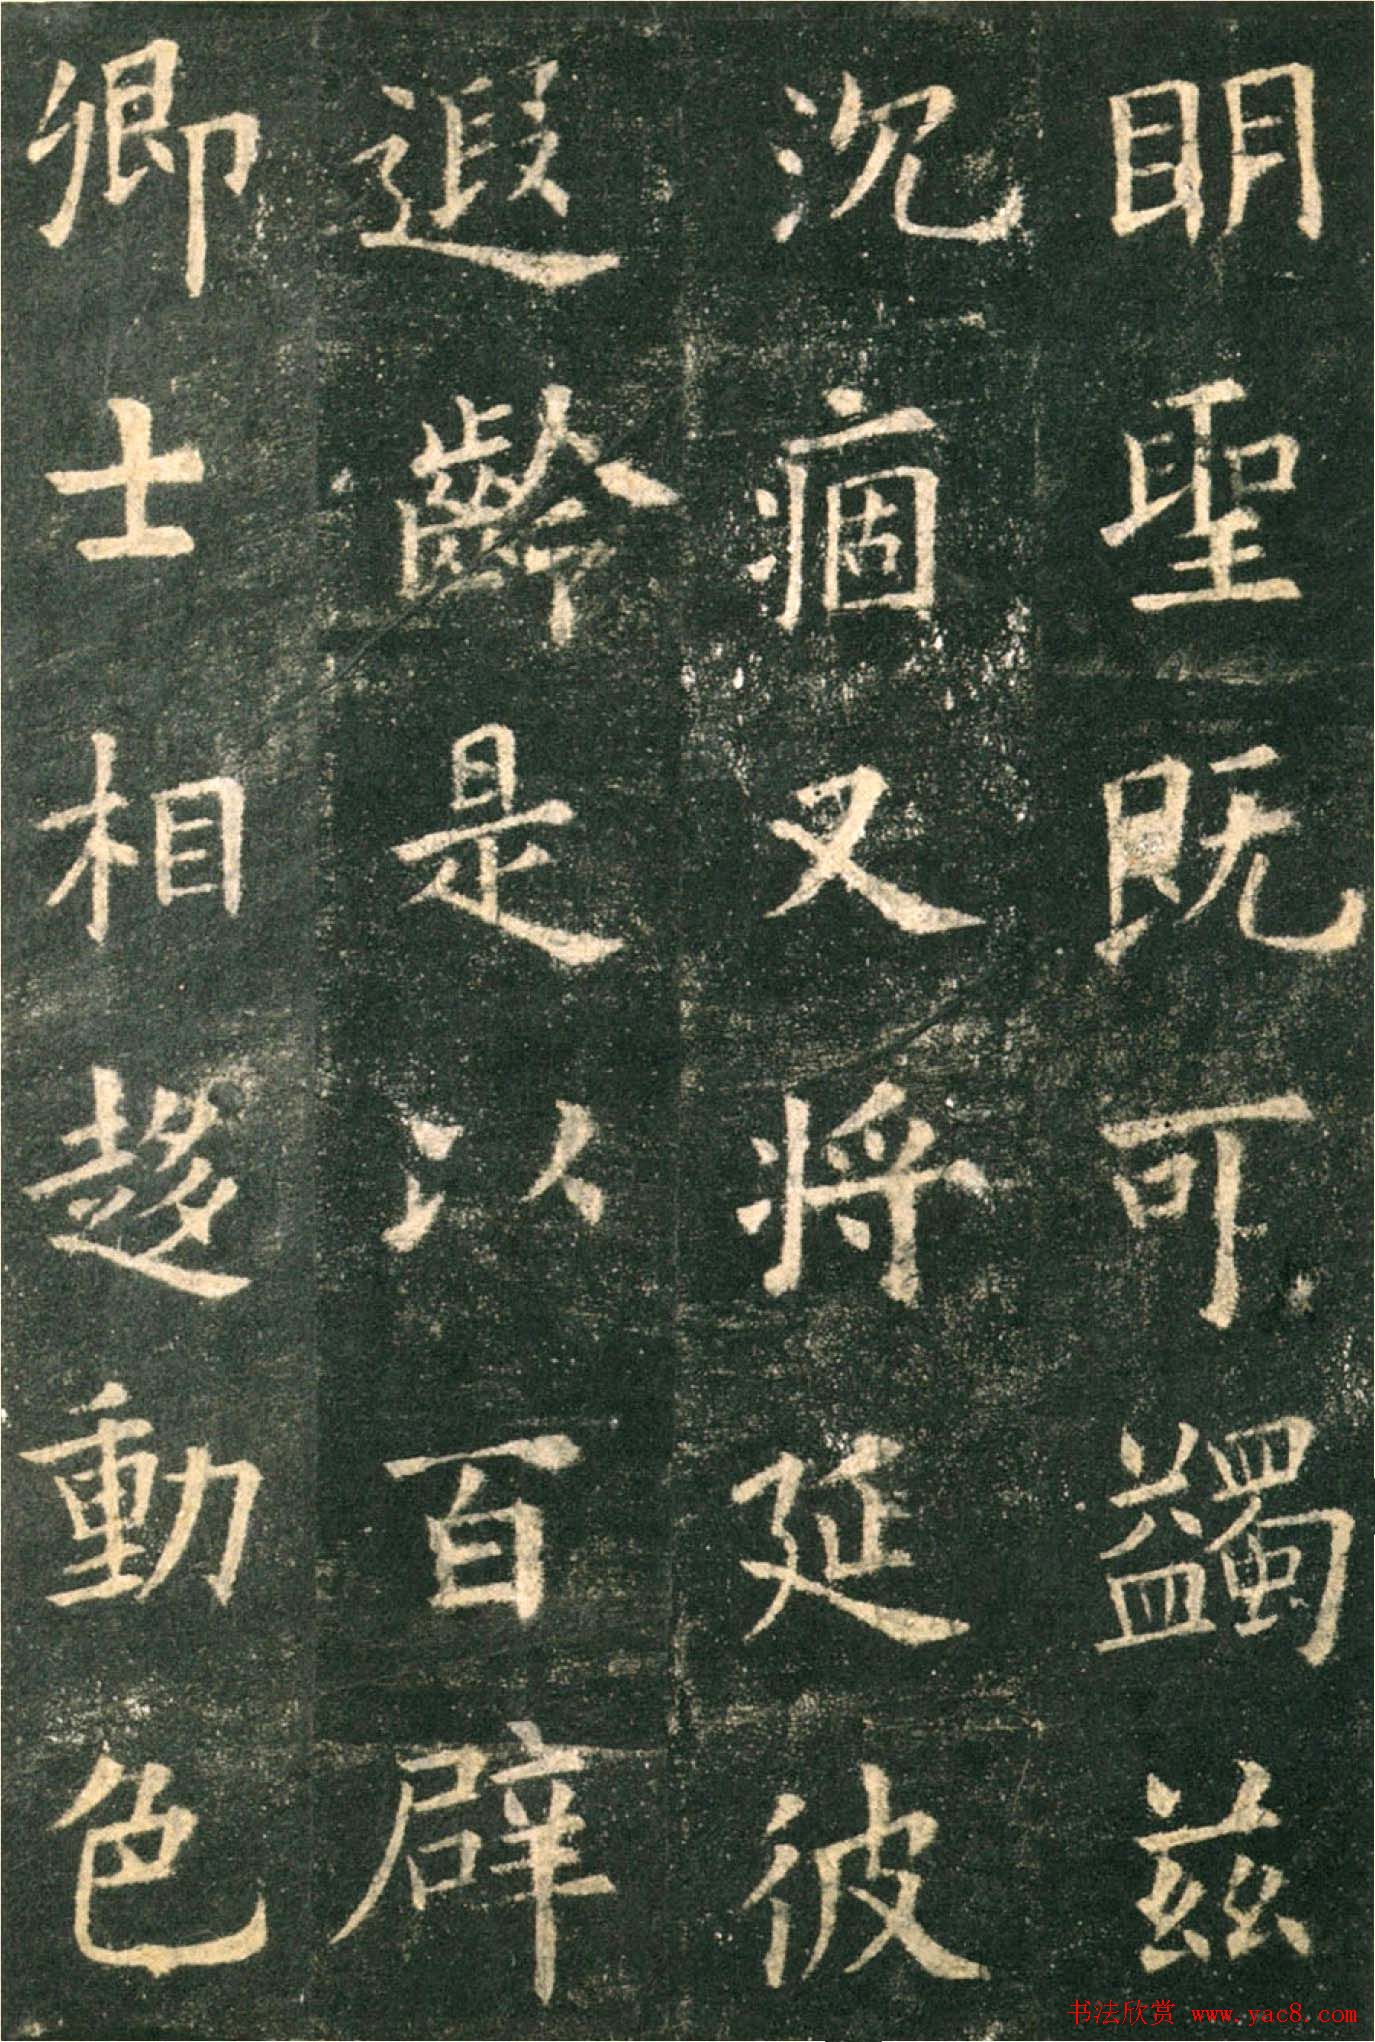 眀聖既可蠲兹
沉痼又将延彼
遐齡是以百辟
卿士相趍動色
书法欣赏 www.yac8.com